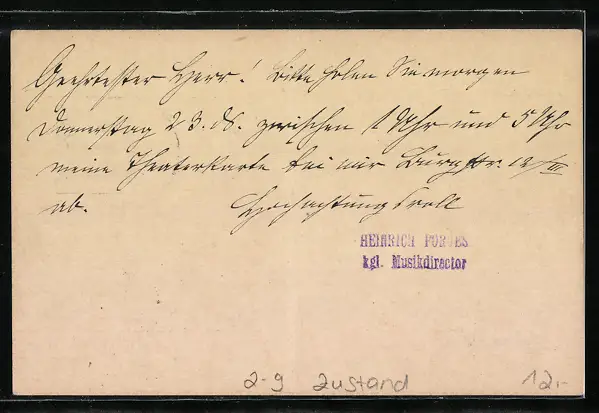 Geehrtester Herr! Bitte holen Sie morgen
Donnerstag 23. ds. zwischen 1 Uhr und 5 Uhr
meine Theaterkarte bei mir Burgstr. 12/III
ab. Hochachtungsvoll
HEINRICH PORGES
kgl. Musikdirector
2-9 Zustand 12.-